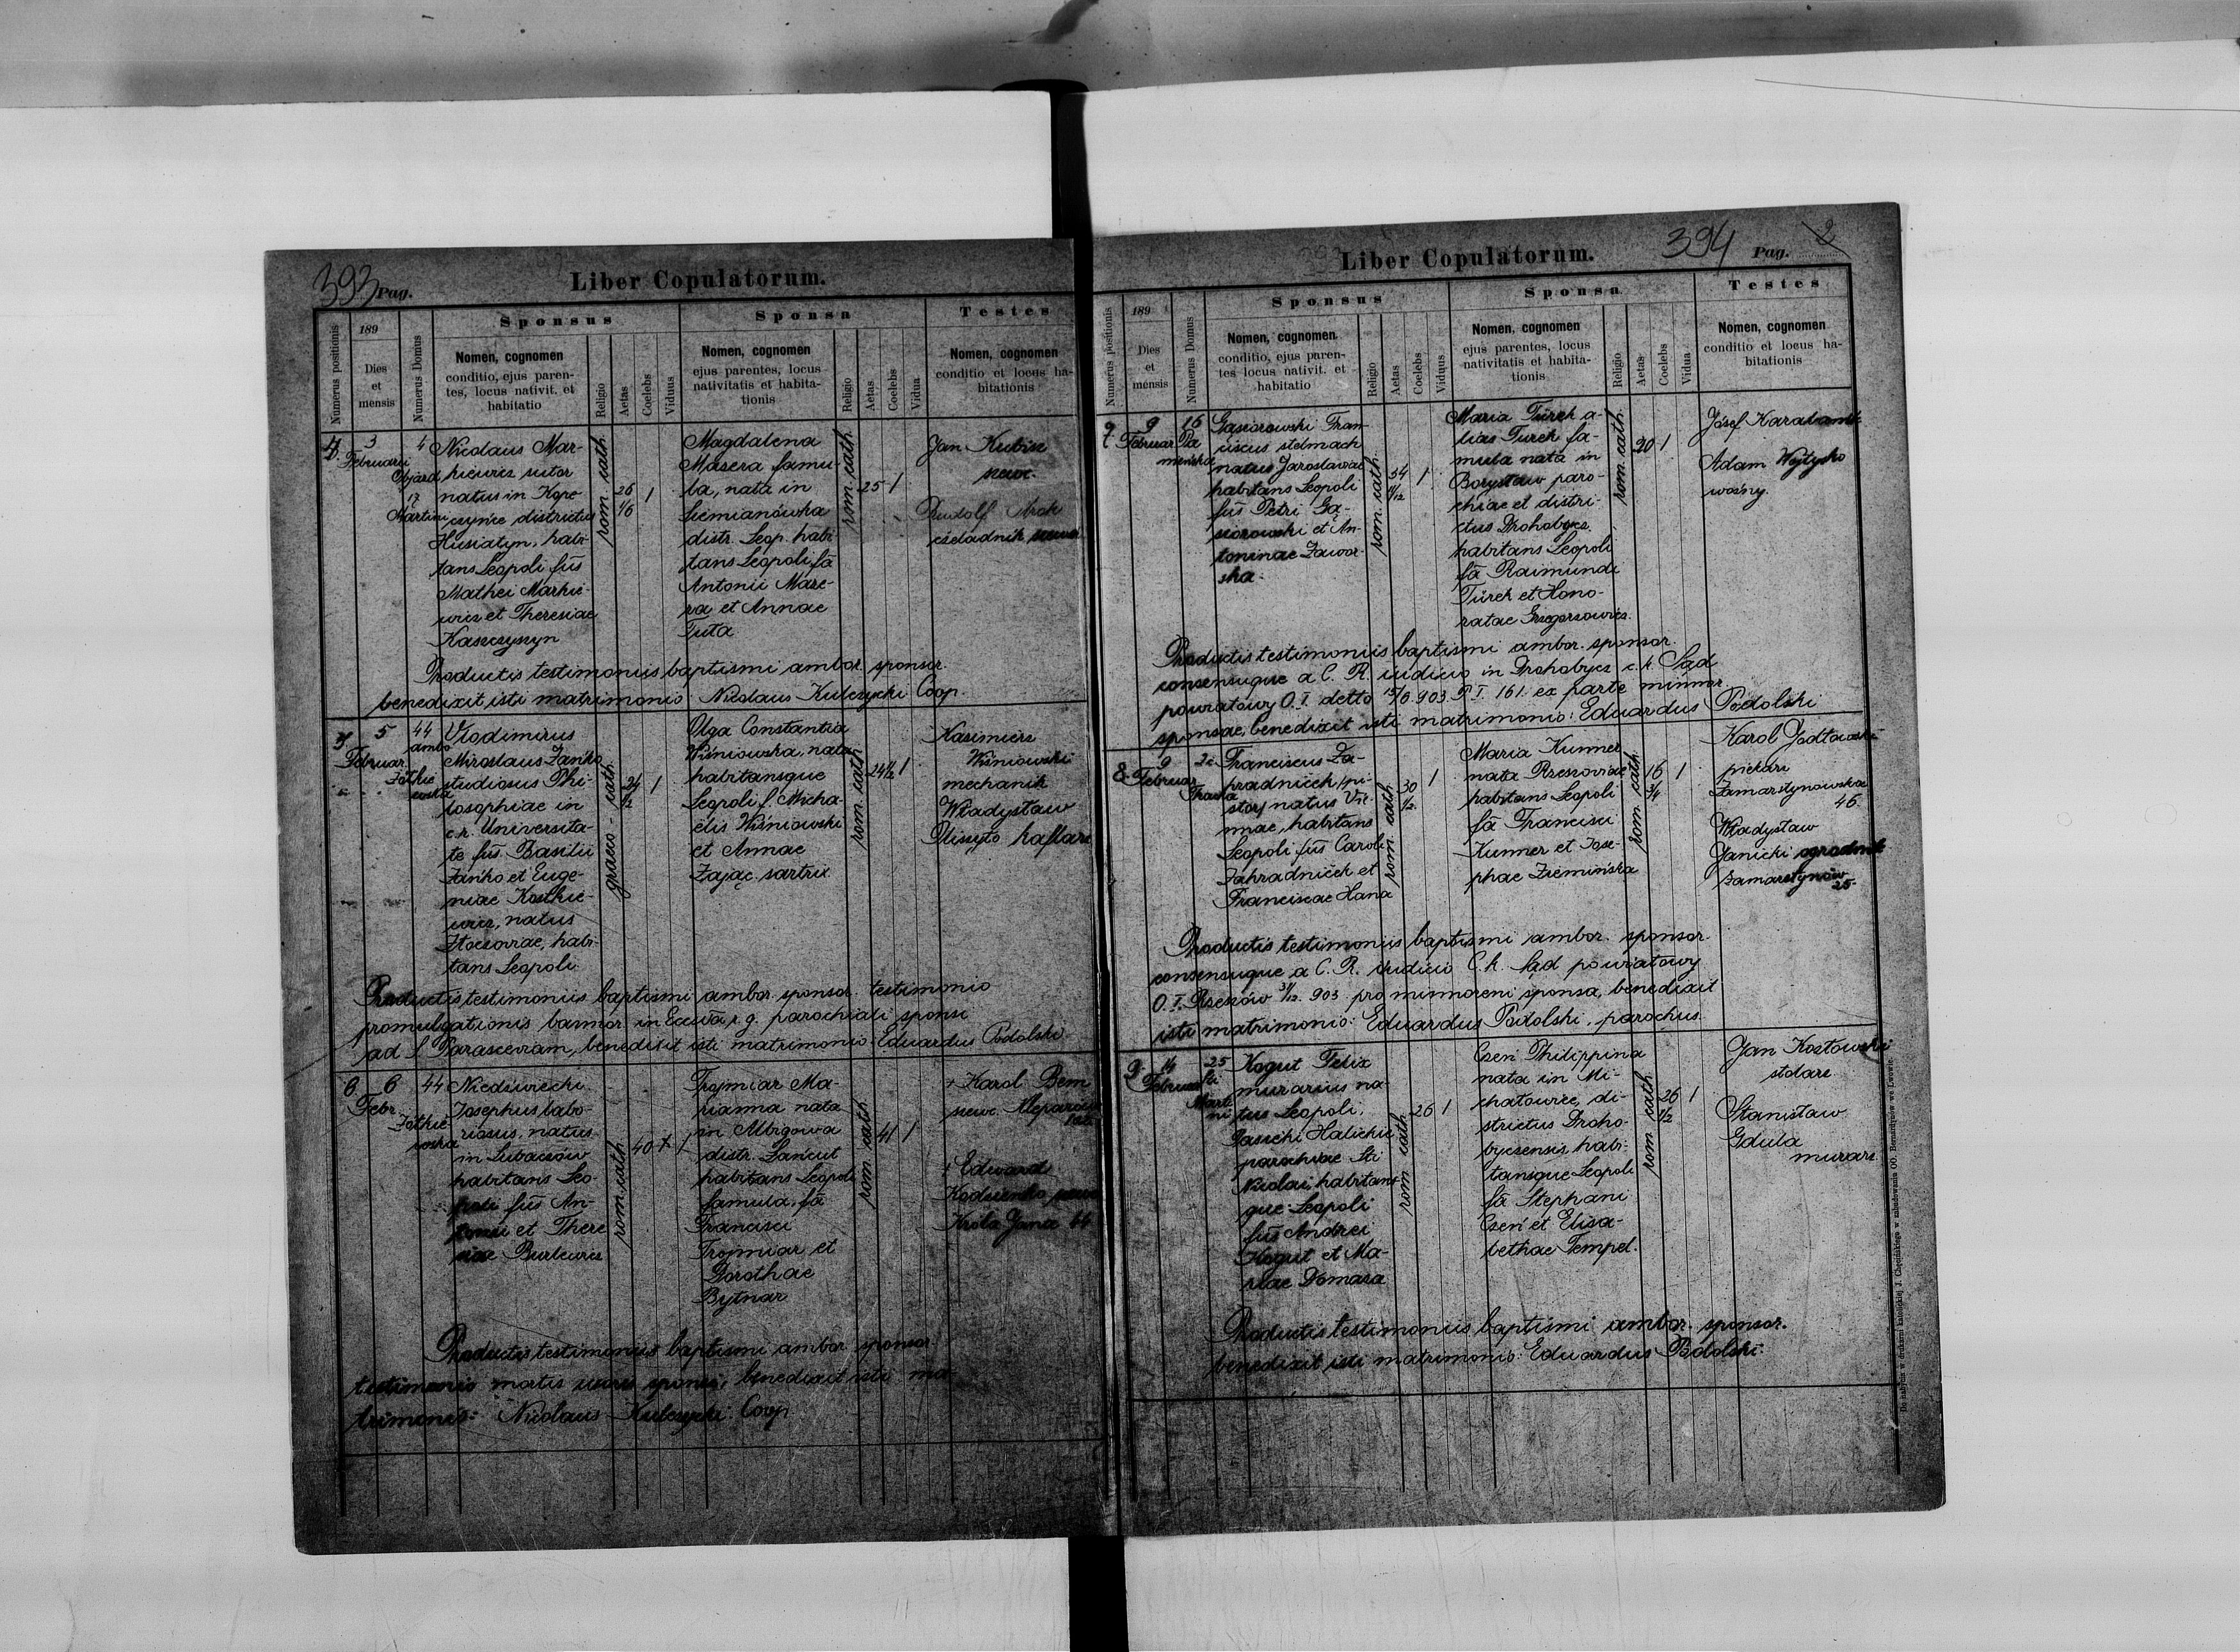 393 Pag.
Liber Copulatorum.
Numerus positionis
189
Dies
et
mensis
Numerus Domus
Sponsus
Nomen, cognomen
conditio, ejus paren-
tes, locus nativit. et
habitatio
Religio
Aetas
Coelebs
Viduus
Sponsa
Nomen, cognomen
ejus parentes, locus
nativitatis et habita-
tionis
Religio
Aetas
Coelebs
Vidua
Testes
Nomen, cognomen
conditio et locus ha-
bitationis
4.
3
Februarii
4
17
Martini
Nicolaus Mar-
kiewicz sutor
natus in Kope-
czyńce districtus
Husiatyn, habi-
tans Leopoli fũs
Mathei Markie-
wicz et Theresiae
Kaszczyszyn
rom. cath.
26
1/6
1
Magdalena
Masera famu-
la, nata in
Siemianówka
distr. Leop. habi
tans Leopoli fã
Antonii Mase-
ra et Annae
Tuta
rom. cath.
25
1
Jan Kubisz
szewc.
Rudolf
czeladnik
Productis testimoniis baptismi ambor. sponsor.
benedixit isti matrimonio Nicolaus Kulczycki Coop.
5
5
Februar.
44
ambo
Żółkie
wska
Vlodimirus
Miroslaus Zańko
studiosus Phi-
losophiae in
c.r. Universita-
te fũs Basilii
Zańko et Euge-
niae Kostkie-
wicz, natus
Złoczoviae, habi-
tans Leopoli
graeco-cath.
24
1/2
1
Olga Constantia
Wiśniowska, nata
habitansque
Leopoli f. Micha-
elis Wiśniowski
et Annae
Zając sartrix
rom. cath.
24 1/2
1
Kazimierz
Wiśniowski
mechanik
Władysław
kaflarz
Productis testimoniis baptismi ambor. sponsor. testimonio
promulgationis bannor. in Ecclã r. g. parochiali sponsi
ad S. Parasceviam, benedixit isti matrimonio Eduardus Podolski
6
6
Febr.
44
Żółkie
wska
Niedzwiecki
Josephus labo-
riosus, natus
in Lubaczów
habitans Leo-
poli fũs An-
tonii et There
siae Burkiewicz
rom. cath.
40
1
Trojniar Ma-
rianna nata
in Albigowa
distr. Łańcut
habitans Leopoli
famula, fã
Francisci
Trojniar et
Dorothae
Bytnar
rom. cath.
41
1
Karol Bem
szewc
Edward
Króla Jana
Productis testimoniis baptismi ambor. sponsor.
testimonio mortis uxoris sponsi, benedixit isti ma-
trimonio: Nicolaus Kulczycki Coop
Liber Copulatorum.
394
Pag. 2
Numerus positionis
189
Dies
et
mensis
Numerus Domus
Sponsus
Nomen, cognomen
conditio, ejus paren-
tes locus nativit. et
habitatio
Religio
Aetas
Coelebs
Viduus
Sponsa
Nomen, cognomen
ejus parentes, locus
nativitatis et habita-
tionis
Religio
Aetas
Coelebs
Vidua
Testes
Nomen, cognomen
conditio et locus ha-
bitationis
7
9
Februar.
16
Gąsiorowski Fran-
ciscus stelmach
natus Jaroslaviae
habitans Leopoli
fũs Petri Gą-
siorowski et An-
toninae Zawor-
ska.
rom. cath.
34
11/12
1
Maria Türck a-
lias Turek fa-
mula nata in
Borysław paro-
chiae et distri-
ctus Drohobycz,
habitans Leopoli
fã Raimundi
Türck et Hono-
ratae Grzegorzowicz.
rom. cath.
20
1
Józef
Adam Wojtysko
woźny.
Productis testimoniis baptismi ambor. sponsor.
consensuque a C. R. iudicio in Drohobycz c. k. Sąd
powiatowy O. I. detto 15/6 903. P. I. 161. ex parte minnor.
sponsae, benedixit isti matrimonio: Eduardus Podolski
8.
9
Februar.
Franciscus Za-
hradniček
natus Vie-
nnae, habitans
Leopoli fũs Caroli
Zahradniček et
Franciscae Hana
rom. cath.
30
1/12.
1
Maria Kunner
nata Rzeszoviae
habitans Leopoli
fã Francisci
Kunner et Jose-
phae Ziemińska
rom. cath.
16
3/4
1
Karol Jodłowski
piekarz
Zamarstynowska
46.
Władysław
Janicki ogrodnik
Zamarstynów
25.
Productis testimoniis baptismi ambor. sponsor.
consensuque a C. R. iudicii C. k. Sąd powiatowy
O. I. Rzeszów 31/12. 903 pro minnoreni sponsa, benedixit
isti matrimonio: Eduardus Podolski, parochus.
9.
14
Februar
25
Sti
Marti
ni
Kogut Felix
murarius na-
tus Leopoli,
Gasichi Halickie
parochiae Sti
Nicolai, habitans
que Leopoli
fũs Andrei
Kogut et Ma-
riae Domara
rom. cath.
26
1
Czeń Philippina
nata in Mi-
chałowice, di-
strictus Droho-
byczensis habi-
tansque Leopoli
fã Stephani
Czeń et Elisa-
bethae Tempel.
rom. cath.
26
1/2
1
Jan Kozłowski
stolarz
Stanisław
Gdula
murarz.
Productis testimoniis baptismi ambor. sponsor.
benedixit isti matrimonio: Eduardus Podolski.